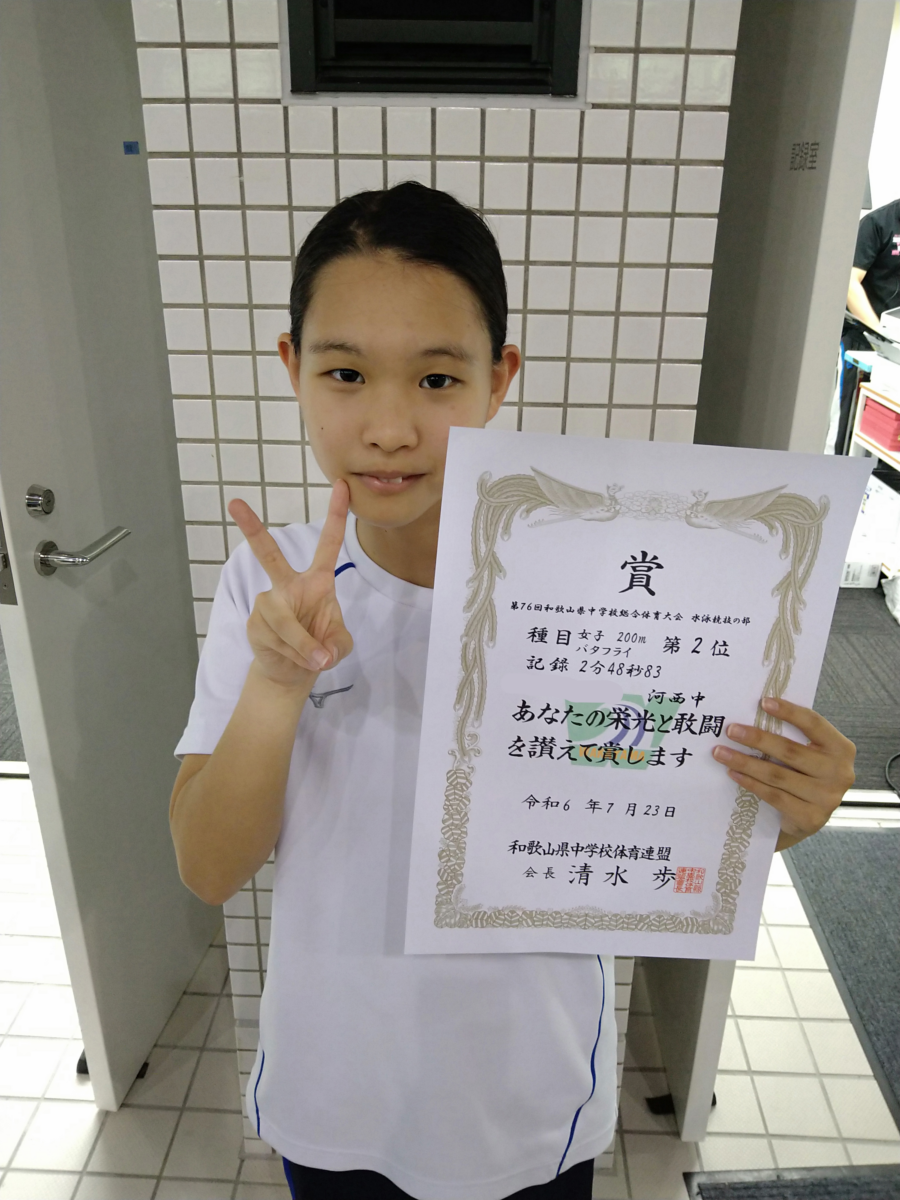 記録室
賞
第76回和歌山県中学校総合体育大会 水泳競技の部
種目 女子 200m バタフライ 第2位
記録 2分48秒83
河西中
あなたの栄光と敢闘
を讃えて賞します
令和6年7月23日
和歌山県中学校体育連盟
会長 清水 歩